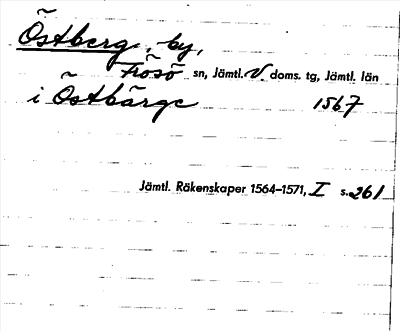 Östberg, by,
Frösö sn, Jämtl. V. doms. tg, Jämtl. län
i Östbärge 1567
Jämtl. Räkenskaper 1564–1571, I s. 261